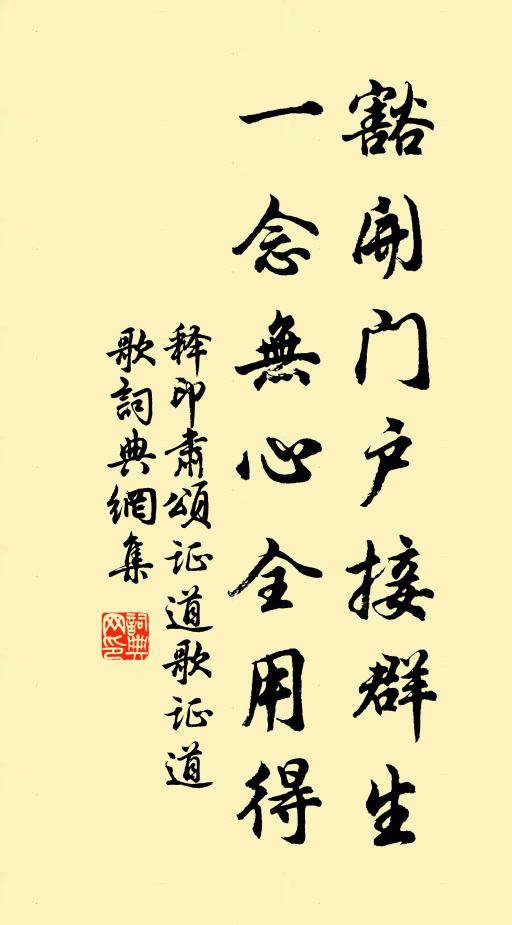 豁開門户接群生
一念無心全用得
释印肅頌证道歌证道
歌詞典網集
詞典
网印